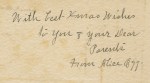 With best Xmas Wishes
to you & your Dear
Parents
From Alice 1897.